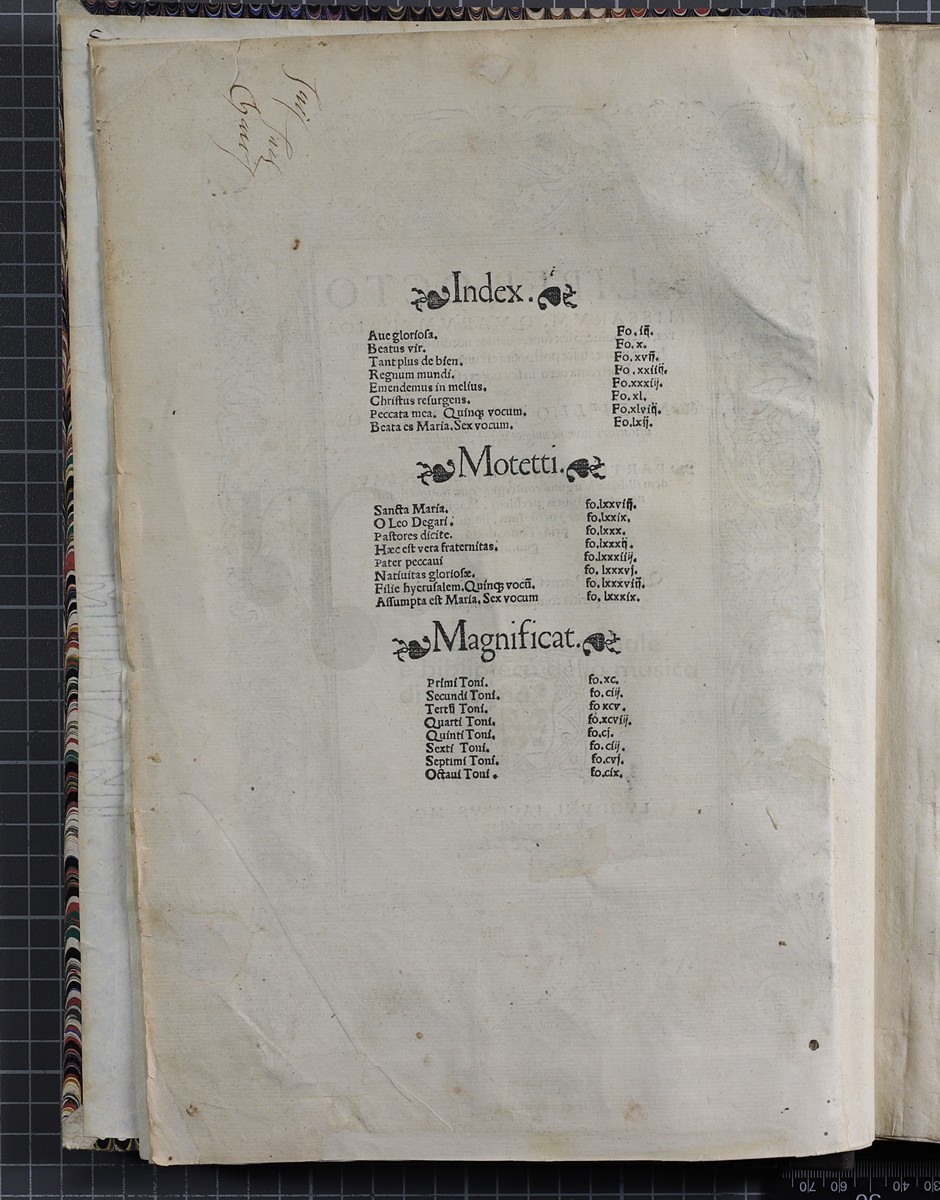 Index.
Aue gloriosa. Fo. iij.
Beatus vir. Fo. x.
Tant plus de bien. Fo. xvij.
Regnum mundi. Fo. xxiiij.
Emendemus in melius. Fo.xxxij.
Christus resurgens. Fo. xl.
Peccata mea. Quinqꝫ vocum. Fo.xlviij.
Beata es Maria. Sex vocum. Fo.lxij.
Motetti.
Sancta Maria. fo.lxxviij.
O Leo Degari. fo.lxxix.
Pastores dicite. fo.lxxx.
Hæc est vera fraternitas. fo.lxxxij.
Pater peccaui fo.lxxxiiij.
Natiuitas gloriosæ. fo. lxxxvj.
Filie hyerusalem. Quinqꝫ vocū. fo. lxxxviij.
Assumpta est Maria. Sex vocum fo. lxxxix.
Magnificat.
Primi Toni. fo.xc.
Secundi Toni. fo.cij.
Tertij Toni. fo xcv.
Quarti Toni. fo.xcviij.
Quinti Toni. fo.cj.
Sexti Toni. fo. ciij.
Septimi Toni. fo.cvj.
Octaui Toni. fo.cix.